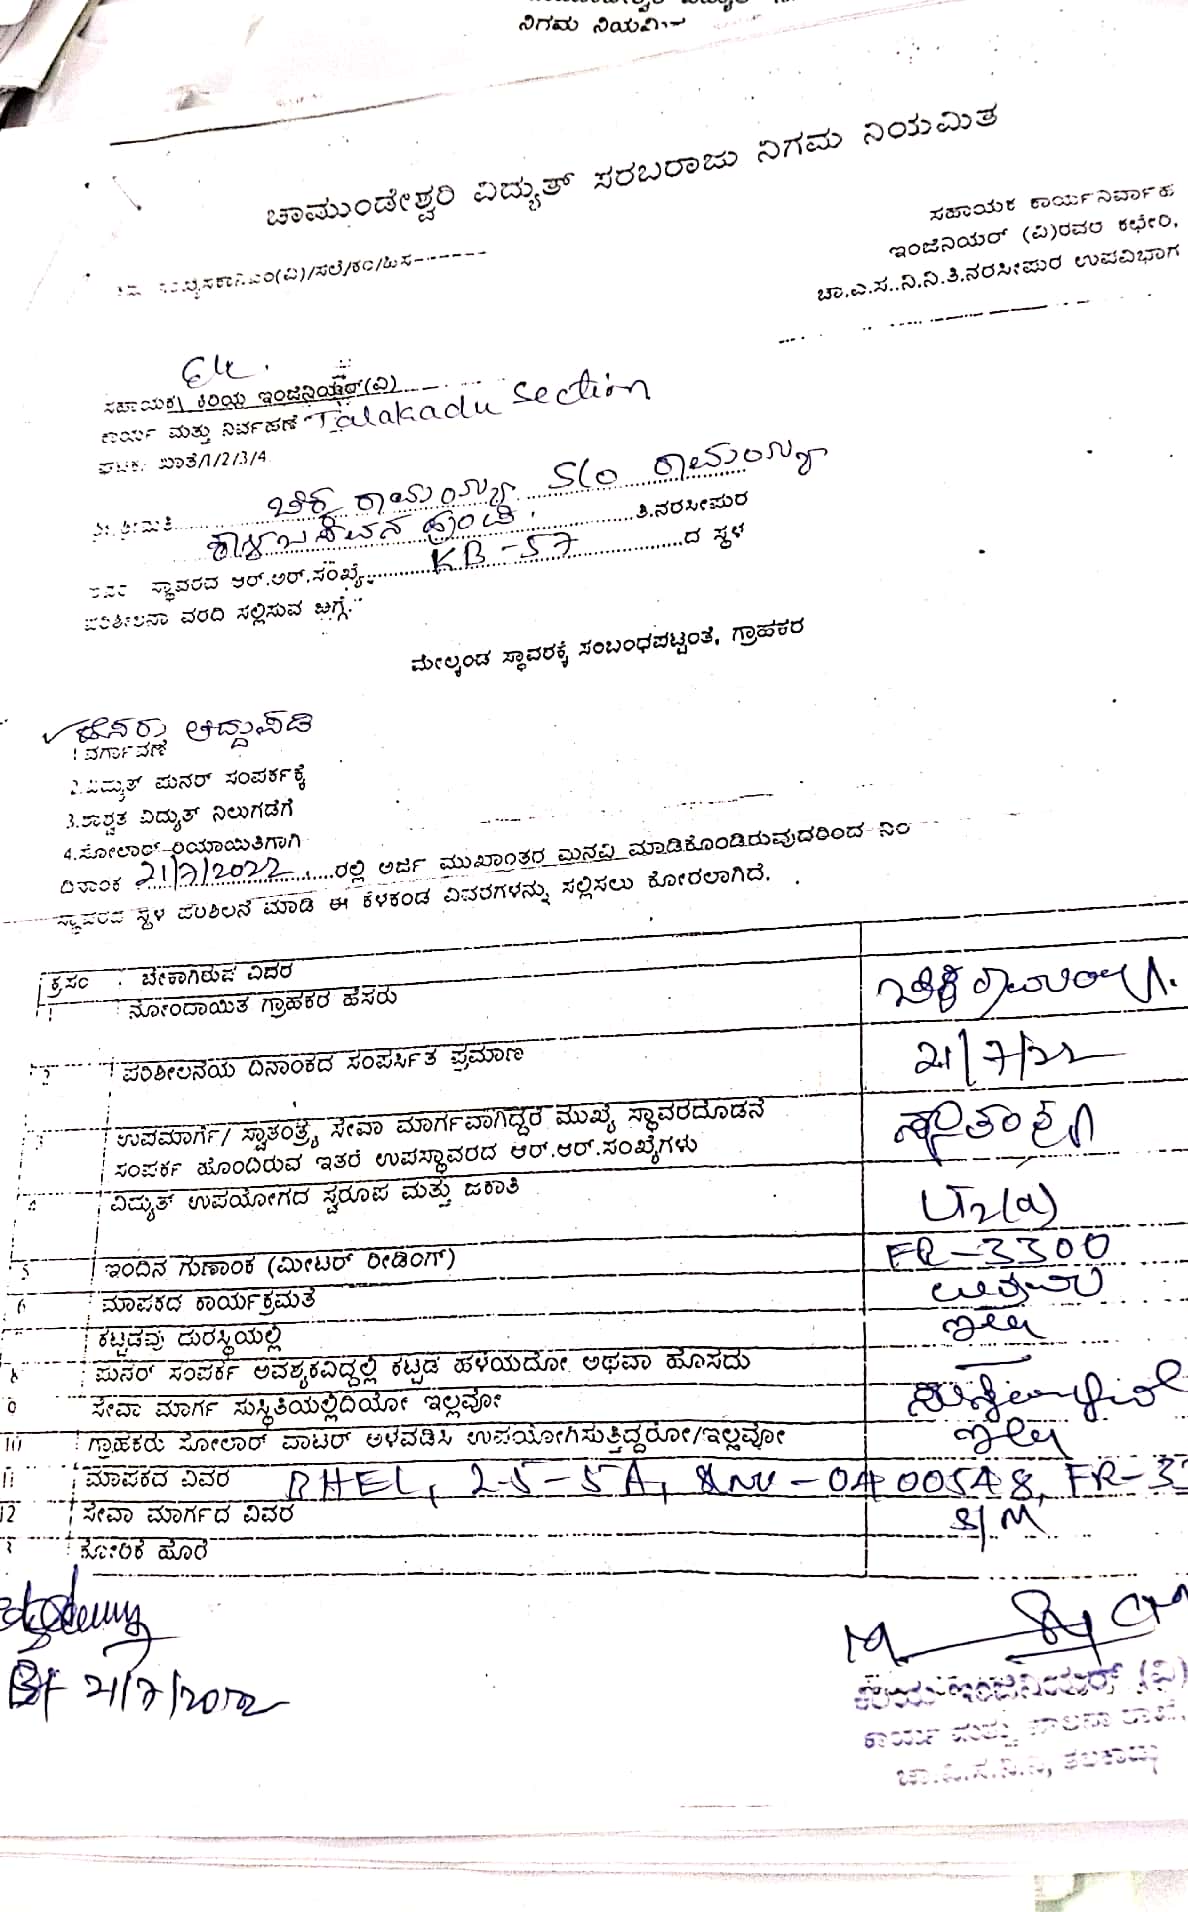 ನಿಗಮ ನಿಯಮಿತ
ಚಾಮುಂಡೇಶ್ವರಿ ವಿದ್ಯುತ್ ಸರಬರಾಜು ನಿಗಮ ನಿಯಮಿತ
ಸಹಾಯಕ ಕಾರ್ಯನಿರ್ವಾಹಕ
ಇಂಜಿನಿಯರ್ (ವಿ)ರವರ ಕಛೇರಿ,
ಚಾ.ವಿ.ಸ..ನಿ.ನಿ.ತಿ.ನರಸೀಪುರ ಉಪವಿಭಾಗ
ಸಹಾಯಕ/ ಕಿರಿಯ ಇಂಜಿನಿಯರ್(ವಿ)
ಕಾರ್ಯ ಮತ್ತು ನಿರ್ವಹಣೆ Talakadu Section
ಘಟಕ, ಶಾಖೆ/1/2/3/4
ಶ್ರೀ. ಶ್ರೀಮತಿ ಚಿಕ್ಕ ರಾಮಯ್ಯ S/o ರಾಮಯ್ಯ
ತಿ.ನರಸೀಪುರ
ಸ್ಥಾವರದ ಆರ್.ಆರ್.ಸಂಖ್ಯೆ KB-57 ದ ಸ್ಥಳ
ಪರಿಶೀಲನಾ ವರದಿ ಸಲ್ಲಿಸುವ ಬಗ್ಗೆ.
ಮೇಲ್ಕಂಡ ಸ್ಥಾವರಕ್ಕೆ ಸಂಬಂಧಪಟ್ಟಂತೆ, ಗ್ರಾಹಕರ
✓ ಹೆಸರು ತಿದ್ದುಪಡಿ
1 ವರ್ಗಾವಣೆ
2.ವಿದ್ಯುತ್ ಪುನರ್ ಸಂಪರ್ಕಕ್ಕೆ
3.ಶಾಶ್ವತ ವಿದ್ಯುತ್ ನಿಲುಗಡೆಗೆ
4.ಸೋಲಾರ್ ರಿಯಾಯಿತಿಗಾಗಿ
ದಿನಾಂಕ 21/7/2022 ರಲ್ಲಿ ಅರ್ಜಿ ಮುಖಾಂತರ ಮನವಿ ಮಾಡಿಕೊಂಡಿರುವುದರಿಂದ
ಸ್ಥಾವರದ ಸ್ಥಳ ಪರಿಶೀಲನೆ ಮಾಡಿ ಈ ಕೆಳಕಂಡ ವಿವರಗಳನ್ನು ಸಲ್ಲಿಸಲು ಕೋರಲಾಗಿದೆ.
ಕ್ರಸಂ ಬೇಕಾಗಿರುವ ವಿವರ
1 ನೋಂದಾಯಿತ ಗ್ರಾಹಕರ ಹೆಸರು ಚಿಕ್ಕರಾಮಯ್ಯ.
2 ಪರಿಶೀಲನೆಯ ದಿನಾಂಕದ ಸಂಪರ್ಸಿತ ಪ್ರಮಾಣ 21/7/22
3 ಉಪಮಾರ್ಗ/ ಸ್ವಾತಂತ್ರ್ಯ ಸೇವಾ ಮಾರ್ಗವಾಗಿದ್ದರೆ ಮುಖ್ಯ ಸ್ಥಾವರದೊಡನೆ
ಸಂಪರ್ಕ ಹೊಂದಿರುವ ಇತರೆ ಉಪಸ್ಥಾವರದ ಆರ್.ಆರ್.ಸಂಖ್ಯೆಗಳು
4 ವಿದ್ಯುತ್ ಉಪಯೋಗದ ಸ್ವರೂಪ ಮತ್ತು ಜಕಾತಿ LT2(a)
5 ಇಂದಿನ ಗುಣಾಂಕ (ಮೀಟರ್ ರೀಡಿಂಗ್) FR-3300
6 ಮಾಪಕದ ಕಾರ್ಯಕ್ರಮತೆ
ಕಟ್ಟಡವು ದುರಸ್ಥಿಯಲ್ಲಿ ಇಲ್ಲ
8 ಪುನರ್ ಸಂಪರ್ಕ ಅವಶ್ಯಕವಿದ್ದಲ್ಲಿ ಕಟ್ಟಡ ಹಳೆಯದೋ ಅಥವಾ ಹೊಸದು —
9 ಸೇವಾ ಮಾರ್ಗ ಸುಸ್ಥಿತಿಯಲ್ಲಿದೆಯೋ ಇಲ್ಲವೋ
10 ಗ್ರಾಹಕರು ಸೋಲಾರ್ ವಾಟರ್ ಅಳವಡಿಸಿ ಉಪಯೋಗಿಸುತ್ತಿದ್ದರೋ/ಇಲ್ಲವೋ ಇಲ್ಲ
11 ಮಾಪಕದ ವಿವರ BHEL, 2.5-5A, FR-33
12 ಸೇವಾ ಮಾರ್ಗದ ವಿವರ S/M
ಕೋರಿಕೆ ಹೊರೆ
21/7/2022
ಕಿರಿಯ ಇಂಜಿನಿಯರ್ (ವಿ)
ಕಾರ್ಯ ಮತ್ತು ಪಾಲನಾ ಶಾಖೆ,
ಚಾ.ವಿ.ಸ.ನಿ.ನಿ, ತಲಕಾಡು